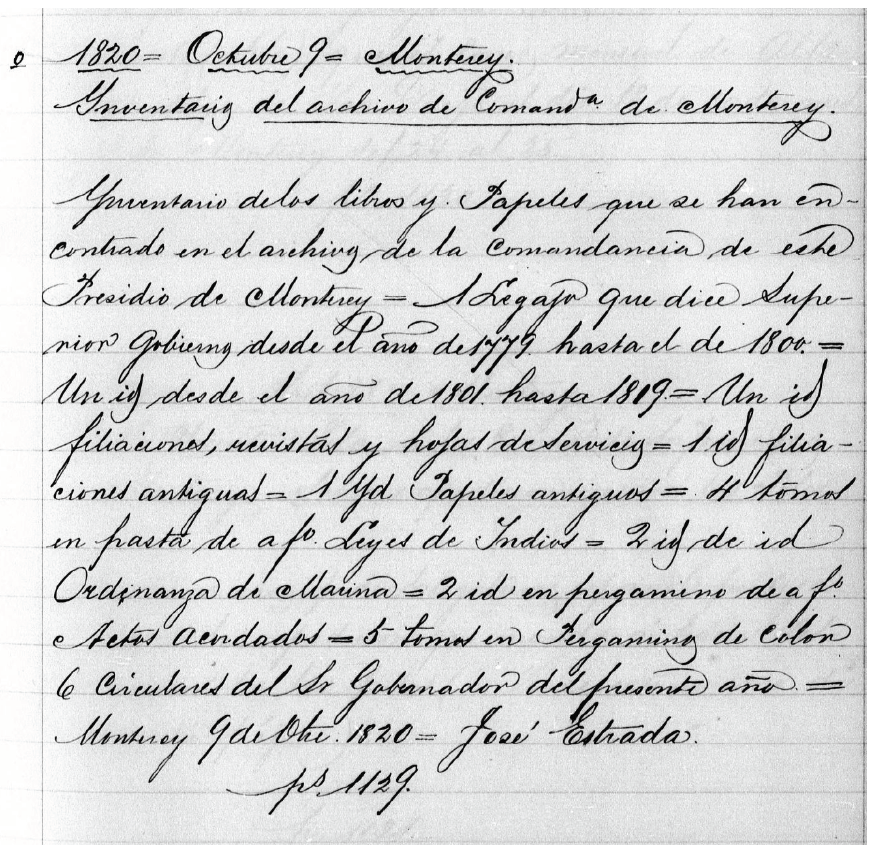 o 1820= Octubre 9= Monterey.
Ynventario del archivo de Comandᵃ de Monterey.
Ynventario delos libros y Papeles que se han en-
contrado en el archivo de la Comandancia de este
Presidio de Monterey = 1 Legajo que dice Supe-
rior Gobierno desde el año de 1779 hasta el de 1800. =
Un id desde el año de 1801. hasta 1819.= Un id
filiaciones, revistas y hojas de servicio = 1 id filia-
ciones antiguas = 1 Yd Papeles antiguos = 4 tomos
en pasta de a fº. Leyes de Indias = 2 id de id
Ordenanza de Marina = 2 id en pergamino de a fº
Actos Acordados = 5 tomos en Pergamino de Colon
6 Circulares del Sr Gobernador del presente año. =
Monterey 9 de Otre. 1820 = José Estrada.
ps. 1129.